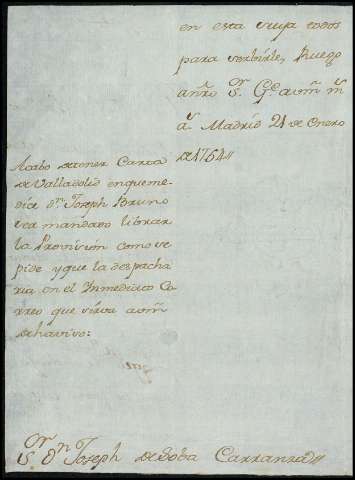 en esta vuya todos
para servirle, Ruego
a nro Sr. Ge. a vm ms
as. Madrid 21 de Enero
de 1754
Acabo de tener Carta
de Valladolid en que me
dia Dn. Joseph Bruno
vea mandado librar
la Provision como se
pide y que la despacha
ria en el Inmediato Co
rreo que sirva a vm
de havivo:
Sor. Dn. Joseph de Soba Carranza